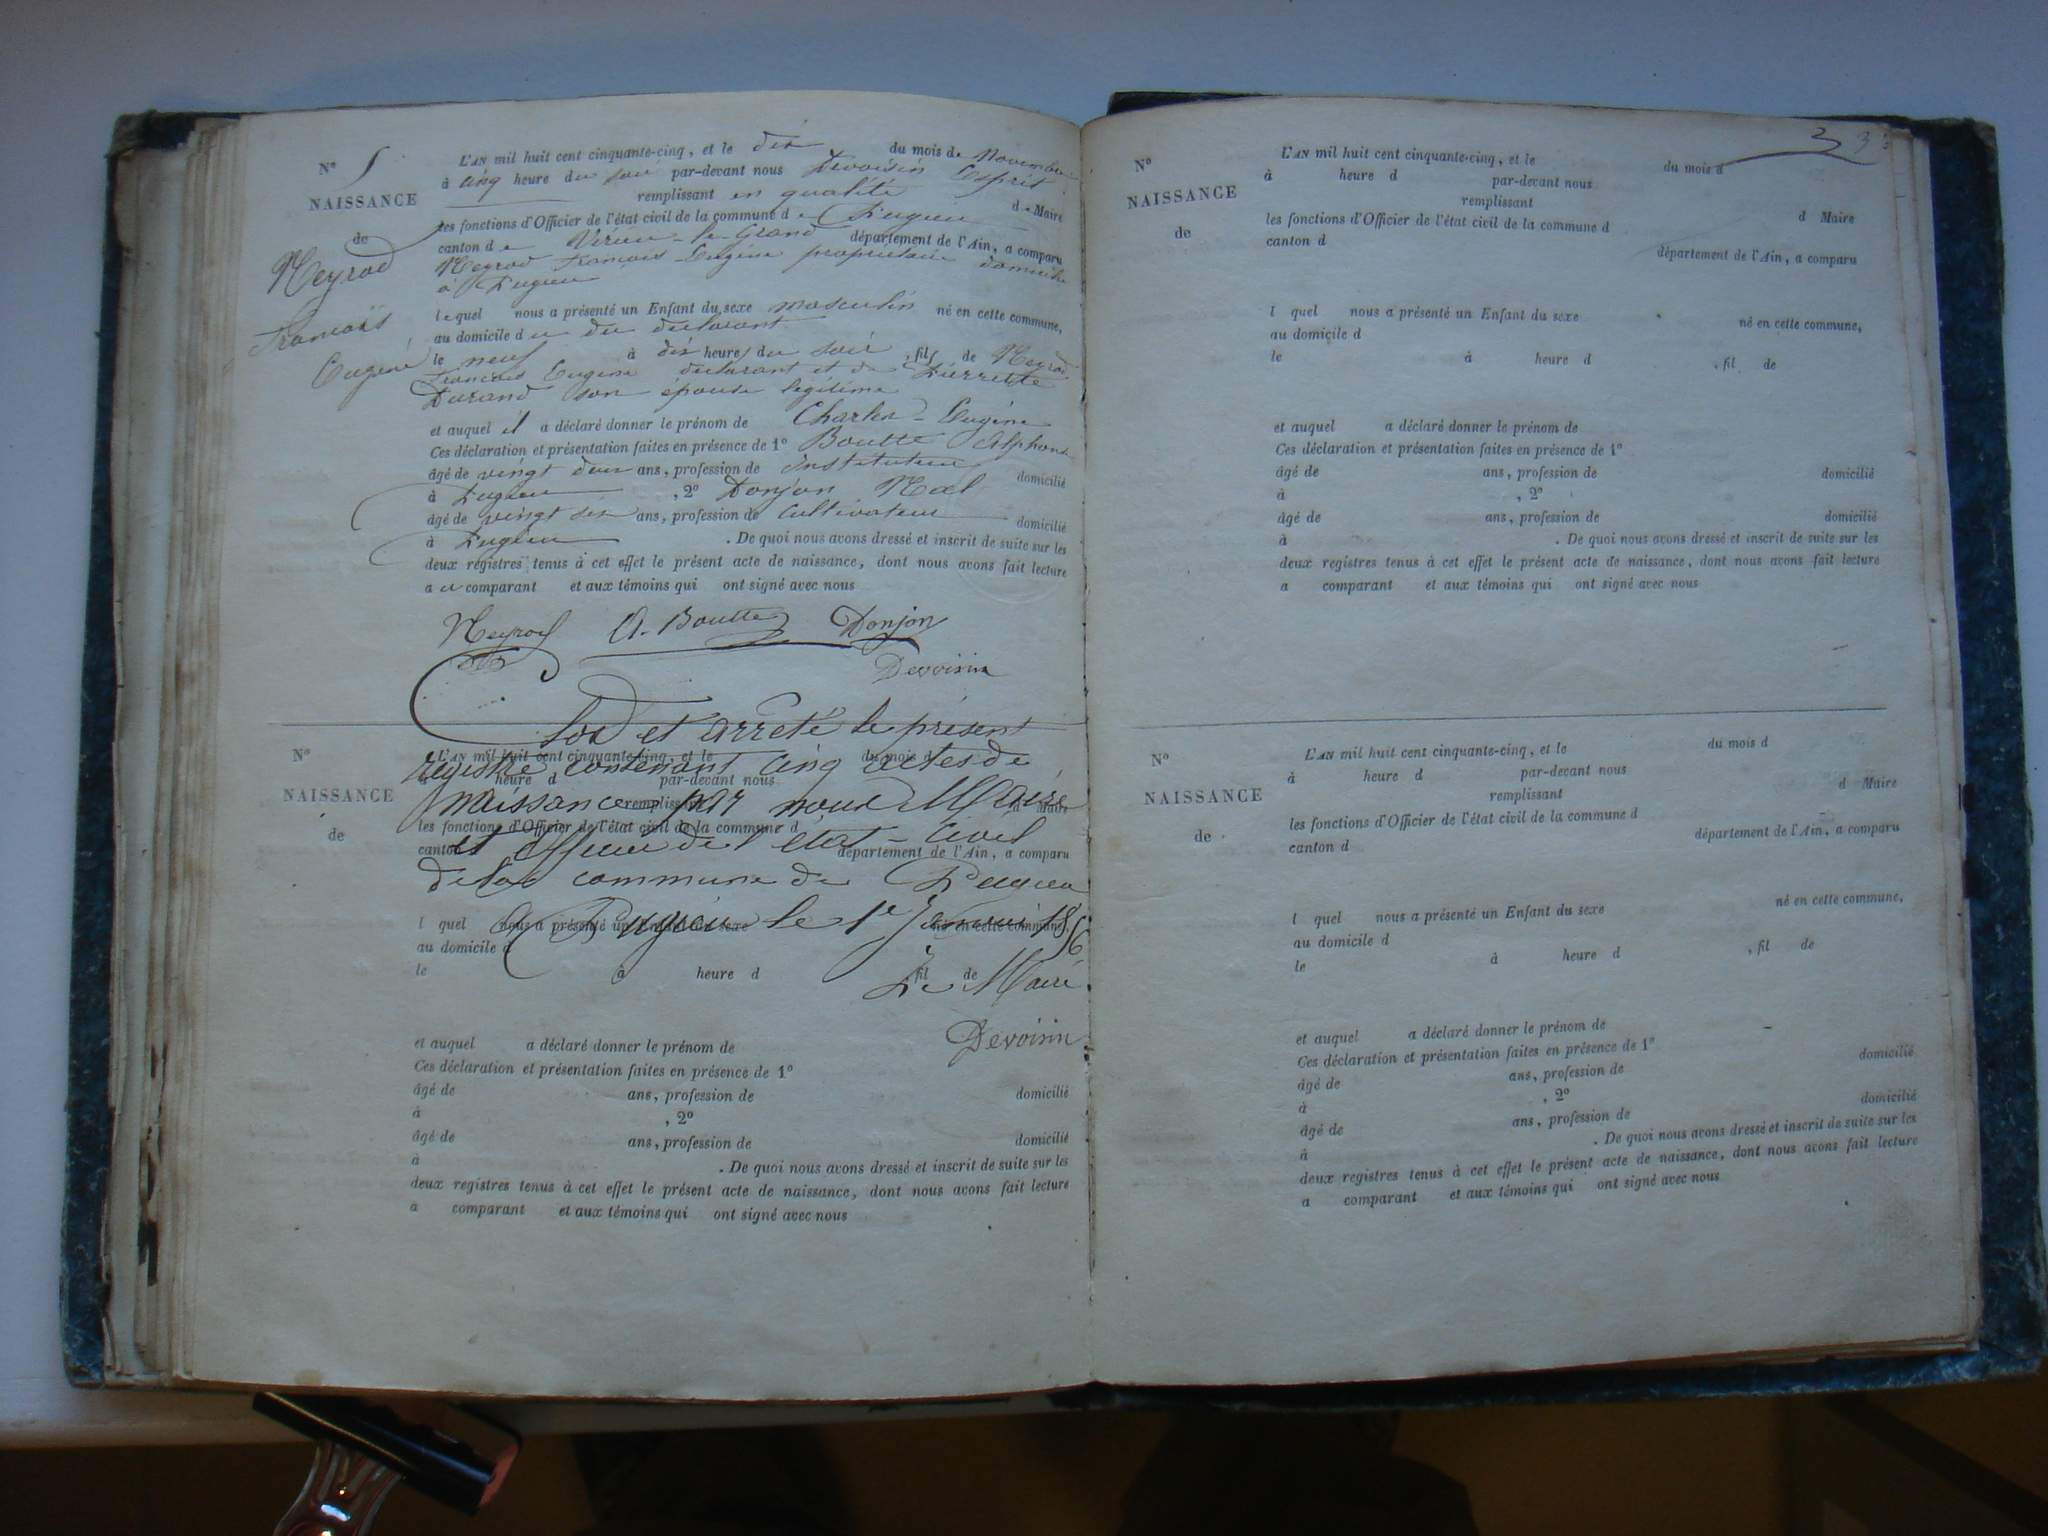 N° 5
NAISSANCE
de
Neyrod
François
Eugène
L'AN mil huit cent cinquante-cinq, et le dix du mois de Novembre
à cinq heure du soir par-devant nous Devoisin Esprit
remplissant en qualité d Maire
les fonctions d'Officier de l'état civil de la commune de Pugieu
canton de Virieu-le-Grand département de l'Ain, a comparu
Neyrod François Eugène propriétaire domicilié
à Pugieu
lequel nous a présenté un Enfant du sexe masculin né en cette commune,
au domicile du déclarant
le neuf à dix heure du soir, fils de Neyrod
François Eugène déclarant et de Pierrette
Durand son épouse légitime
et auquel il a déclaré donner le prénom de Charles-Eugène
Ces déclaration et présentation faites en présence de 1° Boutte Alphonse
âgé de vingt deux ans, profession de instituteur domicilié
à Pugieu, 2° Donjon
âgé de vingt six ans, profession de cultivateur domicilié
à Pugieu. De quoi nous avons dressé et inscrit de suite sur les
deux registres tenus à cet effet le présent acte de naissance, dont nous avons fait lecture
au comparant et aux témoins qui ont signé avec nous
Neyrod A. Boutte Donjon
Devoisin
Clos et arreté le présent
registre contenant cinq actes de
naissance par nous Maire
et officier de l'état-civil
de la commune de Pugieu
à Pugieu le 1er Janvier 1856
Le Maire
Devoisin
N°
NAISSANCE
de
L'AN mil huit cent cinquante-cinq, et le du mois d
à heure d par-devant nous
remplissant d Maire
les fonctions d'Officier de l'état civil de la commune d
canton d département de l'Ain, a comparu
l quel nous a présenté un Enfant du sexe né en cette commune,
au domicile d
le à heure d fil de
et auquel a déclaré donner le prénom de
Ces déclaration et présentation faites en présence de 1°
âgé de ans, profession de domicilié
à , 2°
âgé de ans, profession de domicilié
à . De quoi nous avons dressé et inscrit de suite sur les
deux registres tenus à cet effet le présent acte de naissance, dont nous avons fait lecture
a comparant et aux témoins qui ont signé avec nous
3 3
N°
NAISSANCE
de
L'AN mil huit cent cinquante-cinq, et le du mois d
à heure d par-devant nous
remplissant d Maire
les fonctions d'Officier de l'état civil de la commune d
canton d département de l'Ain, a comparu
l quel nous a présenté un Enfant du sexe né en cette commune,
au domicile d
le à heure d , fil de
et auquel a déclaré donner le prénom de
Ces déclaration et présentation faites en présence de 1°
âgé de ans, profession de domicilié
à , 2°
âgé de ans, profession de domicilié
à . De quoi nous avons dressé et inscrit de suite sur les
deux registres tenus à cet effet le présent acte de naissance, dont nous avons fait lecture
a comparant et aux témoins qui ont signé avec nous
N°
NAISSANCE
de
L'AN mil huit cent cinquante-cinq, et le du mois d
à heure d par-devant nous
remplissant d Maire
les fonctions d'Officier de l'état civil de la commune d
canton d département de l'Ain, a comparu
l quel nous a présenté un Enfant du sexe né en cette commune,
au domicile d
le à heure d , fil de
et auquel a déclaré donner le prénom de
Ces déclaration et présentation faites en présence de 1°
âgé de ans, profession de domicilié
à , 2°
âgé de ans, profession de domicilié
à . De quoi nous avons dressé et inscrit de suite sur les
deux registres tenus à cet effet le présent acte de naissance, dont nous avons fait lecture
a comparant et aux témoins qui ont signé avec nous